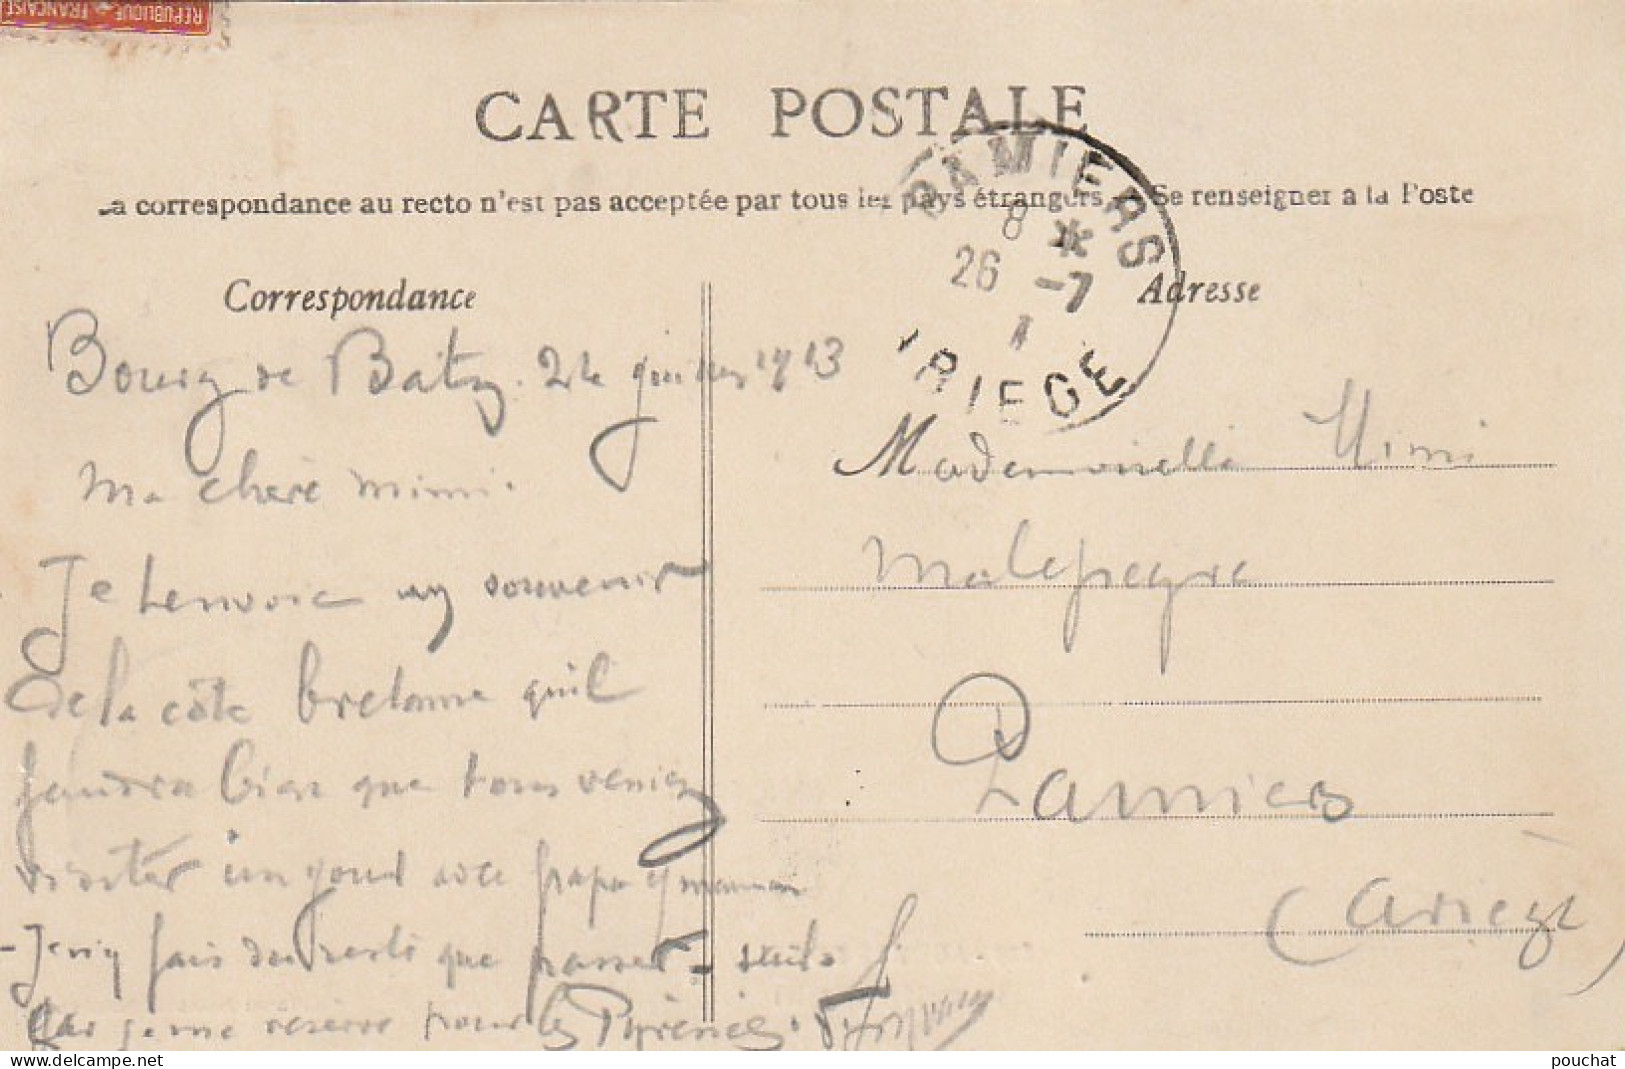 REPUBLIQUE FRANÇAISE
CARTE POSTALE
La correspondance au recto n'est pas acceptée par tous les pays étrangers - Se renseigner à la Poste
PAMIERS
8 *
26 -7
ARIEGE
Correspondance
Adresse
Bourg de Batz. 24 juillet 1913
Ma chère mimi.
Je t'envoie un souvenir
de la côte bretonne qu'il
faudra bien que tous veniez
visiter un jour avec papa et maman
- Je n'y fais du reste que passer -
car je me réserve pour les Pyrénées.
Mademoiselle Mimi
Malepeyre
Pamiers
(Ariège)
pouchat